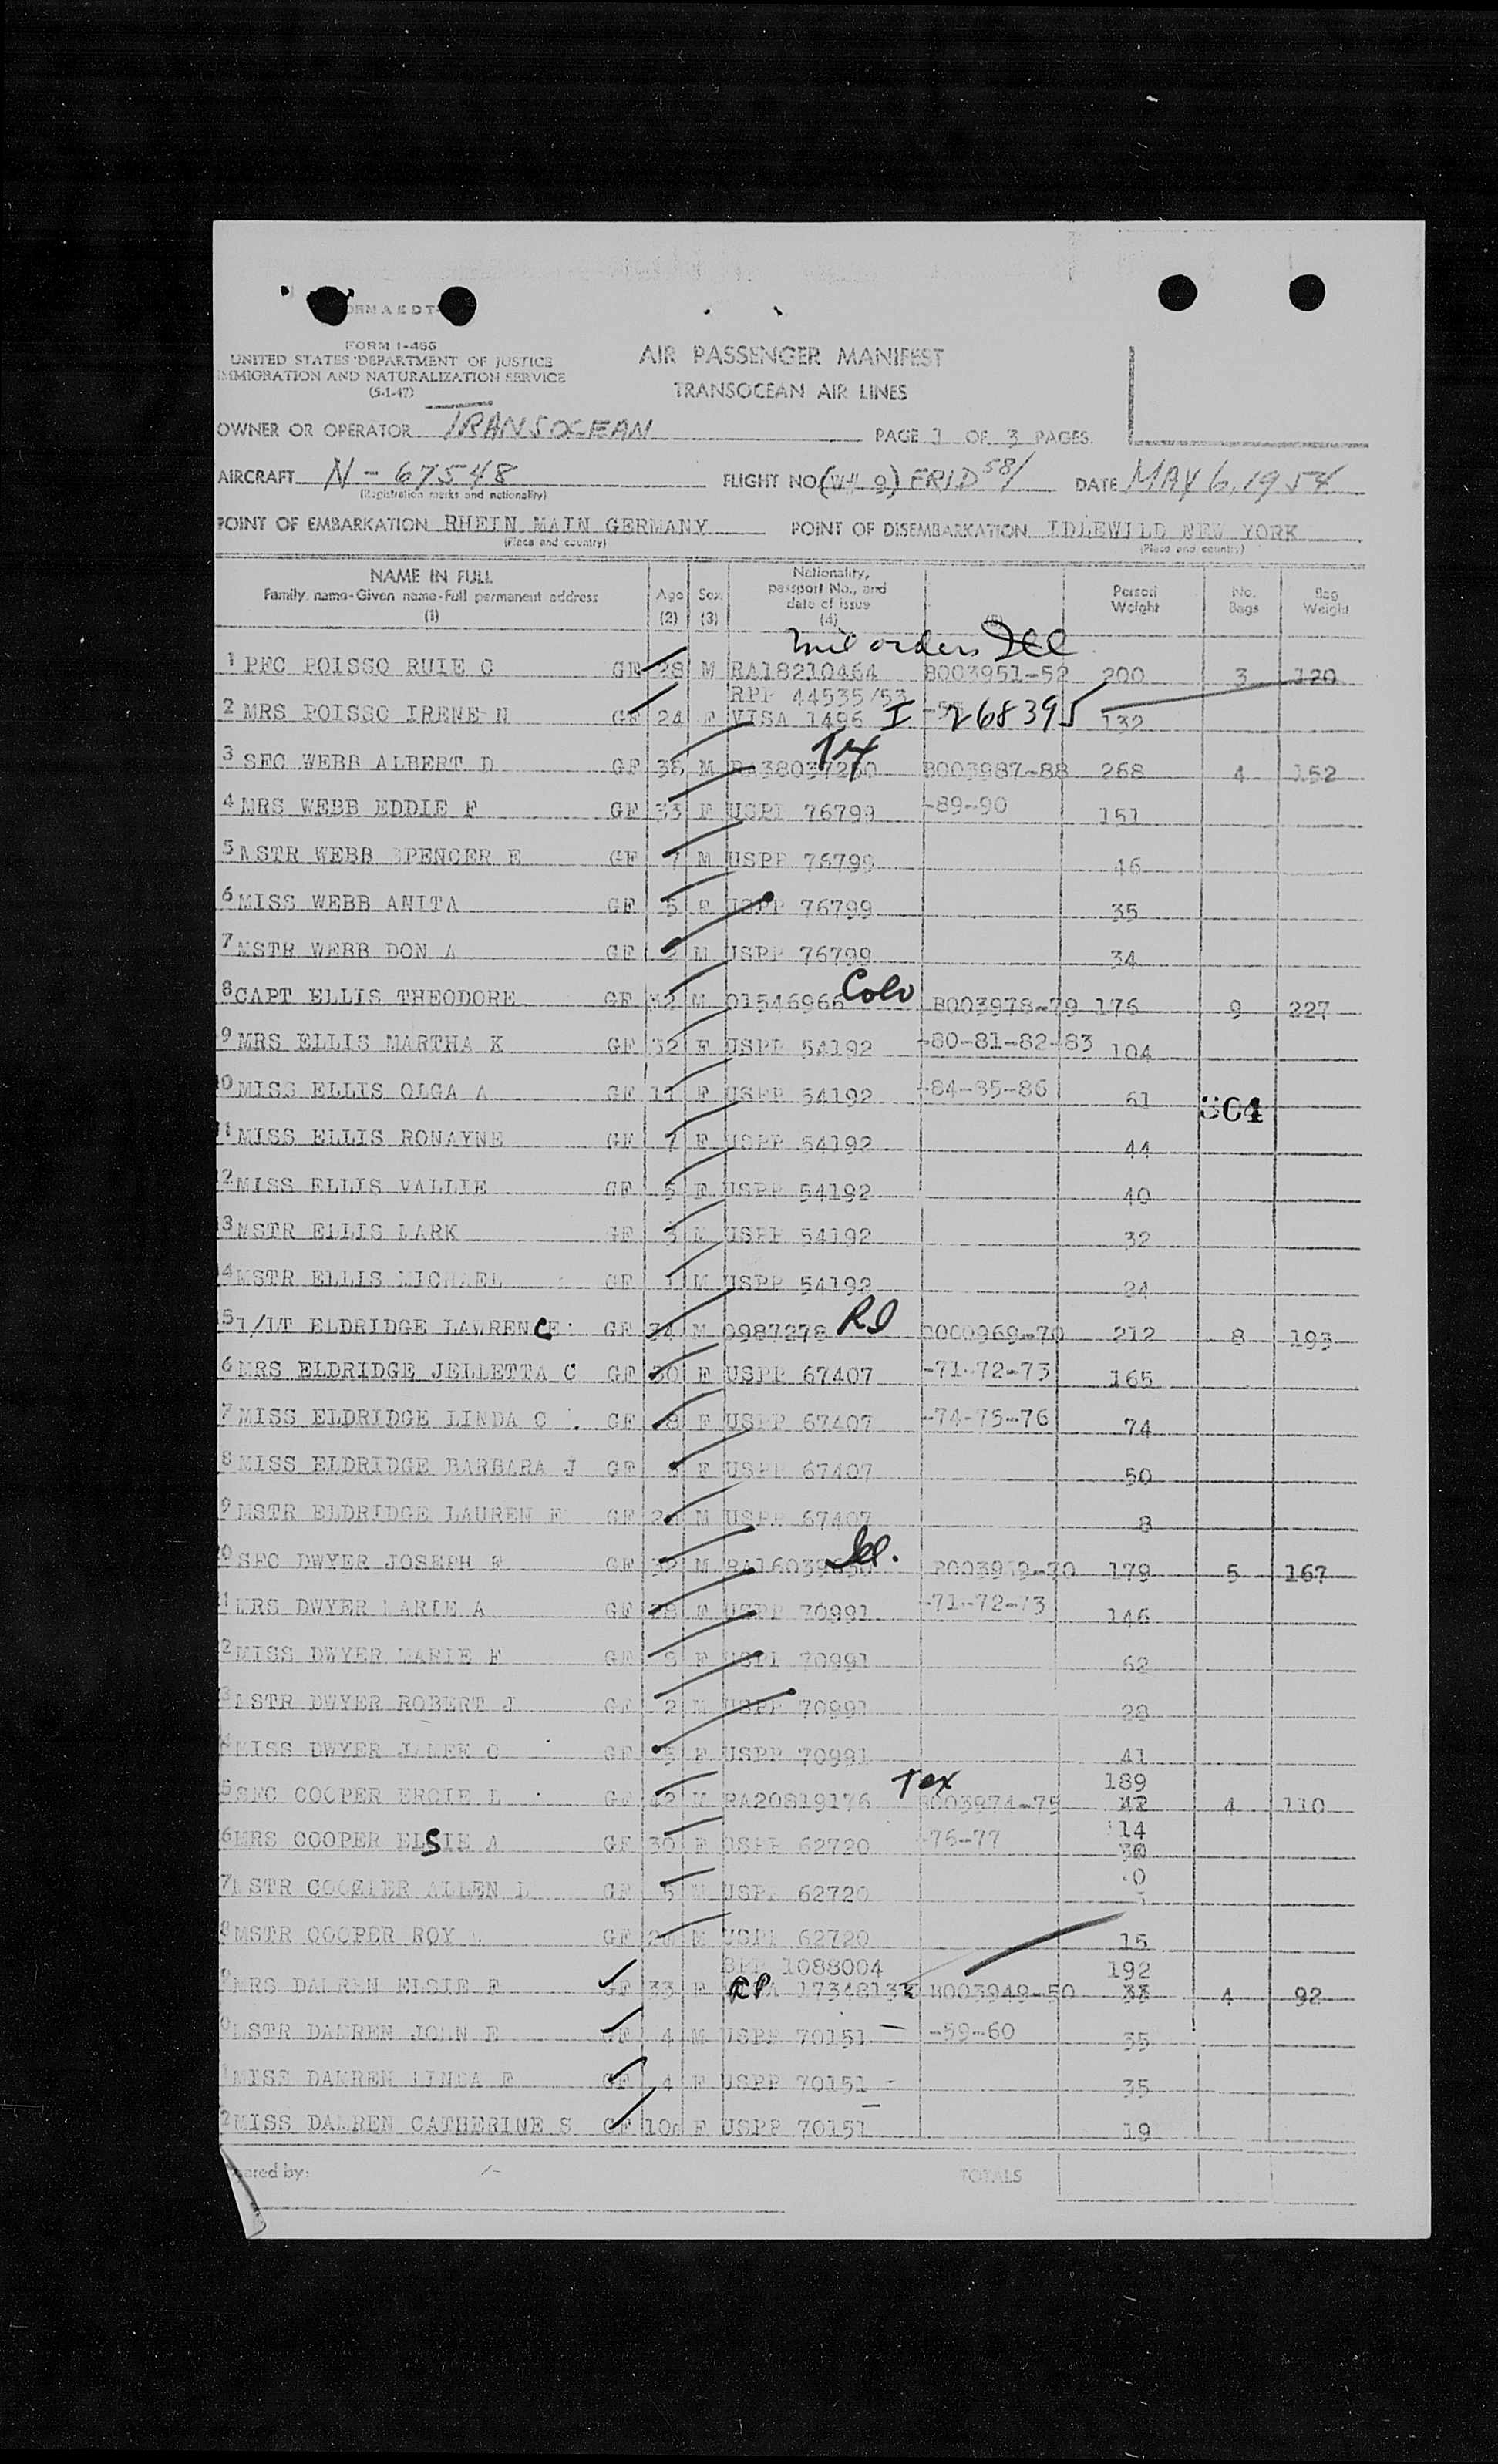 FORM A E D T
FORM I-466
UNITED STATES DEPARTMENT OF JUSTICE
IMMIGRATION AND NATURALIZATION SERVICE
(5-1-47)
AIR PASSENGER MANIFEST
TRANSOCEAN AIR LINES
OWNER OR OPERATOR TRANSOCEAN PAGE 3 OF 3 PAGES
AIRCRAFT N-67548 FLIGHT NO 581 DATE MAY 6, 1954
(Registration marks and nationality)
POINT OF EMBARKATION RHEIN MAIN GERMANY POINT OF DISEMBARKATION IDLEWILD NEW YORK
(Place and country) (Place and country)
NAME IN FULL Family name-Given name-Full permanent address (1) Age (2) Sex (3) Nationality, passport No., and date of issue (4) Person Weight No. Bags Bag Weight
mil orders Ill
1 PFC POISSO RUIE C GF 28 M RA18210464 B003951-52 200 3 120
RPP 44535/53
2 MRS POISSO IRENE N GF 24 F VISA 1496 I 268395 132
Tex
3 SFC WEBB ALBERT D GF 38 M B003987-88 268 4 152
4 MRS WEBB EDDIE F GF 33 F USPP 76799 -89-90 151
5 MSTR WEBB SPENCER E GF 7 M USPP 76799 46
6 MISS WEBB ANITA GF 5 F USPP 76799 35
7 MSTR WEBB DON A GF M USPP 76799 34
8 CAPT ELLIS THEODORE GF 32 M 01546966 Colo B003978-79 176 9 227
9 MRS ELLIS MARTHA K GF 32 F USPP 54192 -80-81-82-83 104
0 MISS ELLIS OLGA A GF 11 F USPP 54192 -84-85-86 61
804
1 MISS ELLIS RONAYNE GF 7 F USPP 54192 44
2 MISS ELLIS VALLIE GF 5 F USPP 54192 40
3 MSTR ELLIS LARK GF 3 M USPP 54192 32
4 MSTR ELLIS MICHAEL GF 1 M USPP 54192 24
5 1/LT ELDRIDGE LAWRENCE GF 34 M 0987278 RI 969-70 212 8 193
6 MRS ELDRIDGE JELLETTA C GF 30 F USPP 67407 -71-72-73 165
7 MISS ELDRIDGE LINDA C GF 8 F USPP 67407 -74-75-76 74
8 MISS ELDRIDGE BARBARA J GF F USPP 67407 50
9 MSTR ELDRIDGE LAUREN E GF M USPP 67407 8
0 SFC DWYER JOSEPH F GF 32 M Ill. 179 5 167
1 MRS DWYER MARIE A GF 28 F USPP 70991 -71-72-73 146
2 MISS DWYER MARIE F GF 8 F USPP 70991 62
3 MSTR DWYER ROBERT J GF 2 M USPP 70991 28
4 MISS DWYER C GF 5 F USPP 70991 41
Tex 189
5 SFC COOPER ERCIE L GF 42 M RA20819176 B003974-75 4 110
6 MRS COOPER ELSIE A GF 30 F USPP 62720 -76-77 114
7 MSTR ALLEN L GF 5 M USPP 62720
8 MSTR COOPER ROY GF M USPP 62720 15
BPP 1088004 192
9 MRS DAMREN ELSIE F GF 33 F RP B003949-50 4 92
0 MSTR DAMREN JOHN E GF 4 M USPP 70151 -59-60 35
1 MISS DAMREN LINDA F GF 4 F USPP 70151 35
2 MISS DAMREN CATHERINE S GF 10M F USPP 70151 19
Prepared by: TOTALS